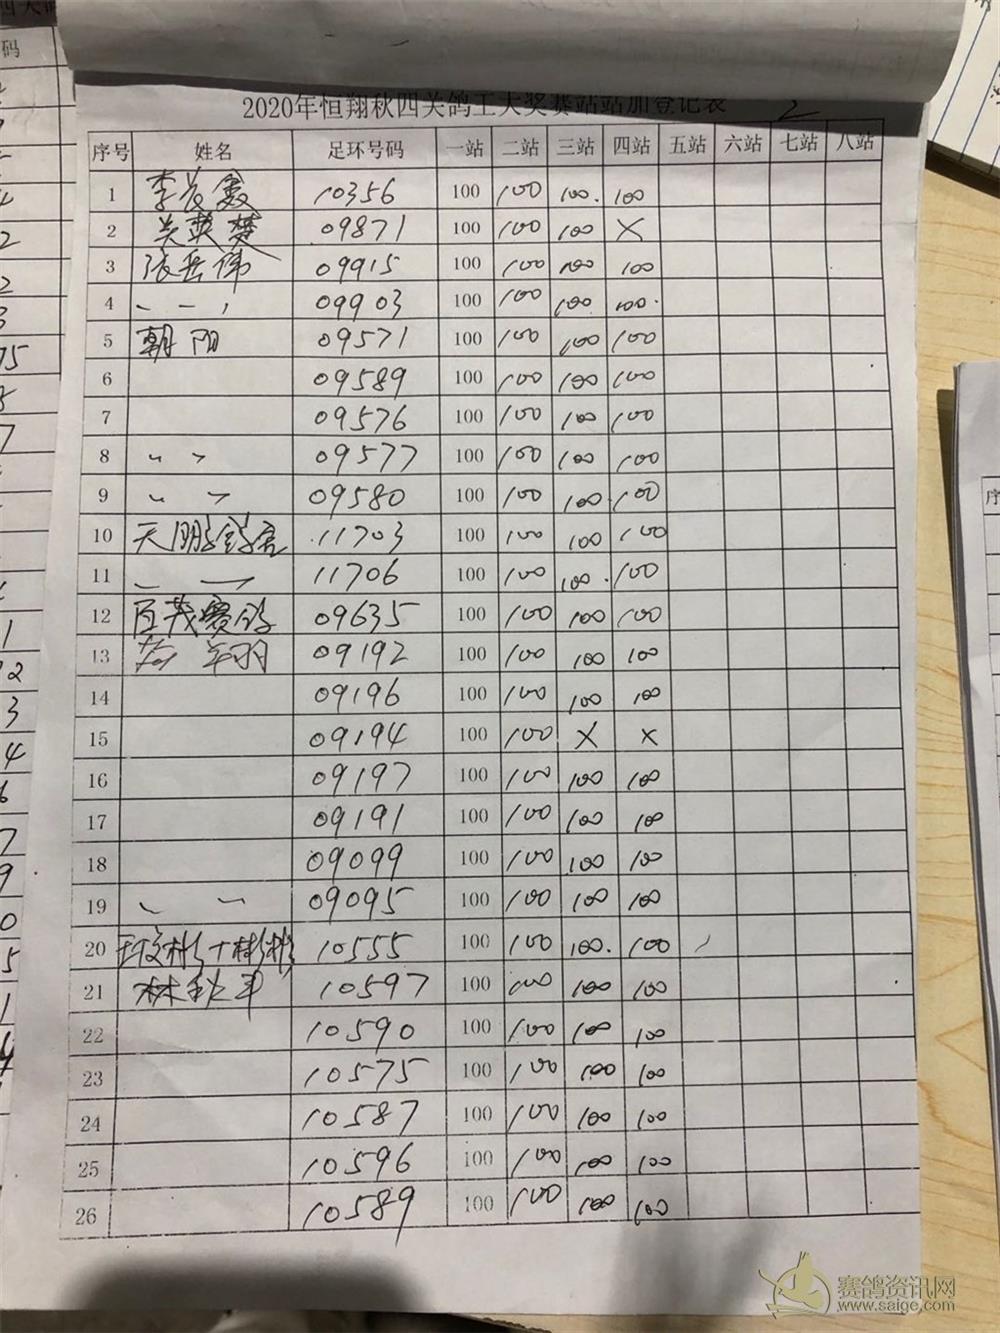 2020年恒翔秋四关鸽王大奖赛站站加登记表 2
序号 姓名 足环号码 一站 二站 三站 四站 五站 六站 七站 八站
1 李 鑫 10356 100 100 100. 100
2 关 楚 09871 100 100 100 ×
3 张岳伟 09915 100 100 100 100
4 09903 100 100 100 100.
5 朝阳 09571 100 100 100 100
6 09589 100 100 100 100
7 09576 100 100 100 100
8 〃 09577 100 100 100 100
9 〃 09580 100 100 100 100
10 天鹏 11703 100 100 100 100
11 11706 100 100 100. 100
12 百茂赛鸽 09635 100 100 100 100
13 翔 09192 100 100 100 100
14 09196 100 100 100 100
15 09194 100 100 × ×
16 09197 100 100 100 100
17 09191 100 100 100 100
18 09099 100 100 100 100
19 09095 100 100 100 100
20 彬 + 10555 100 100 100. 100
21 林秋 10597 100 100 100 100
22 10590 100 100 100 100
23 10575 100 100 100 100
24 10587 100 100 100 100
25 10596 100 100 100 100
26 10589 100 100 100 100
赛鸽资讯网
www.saige.com